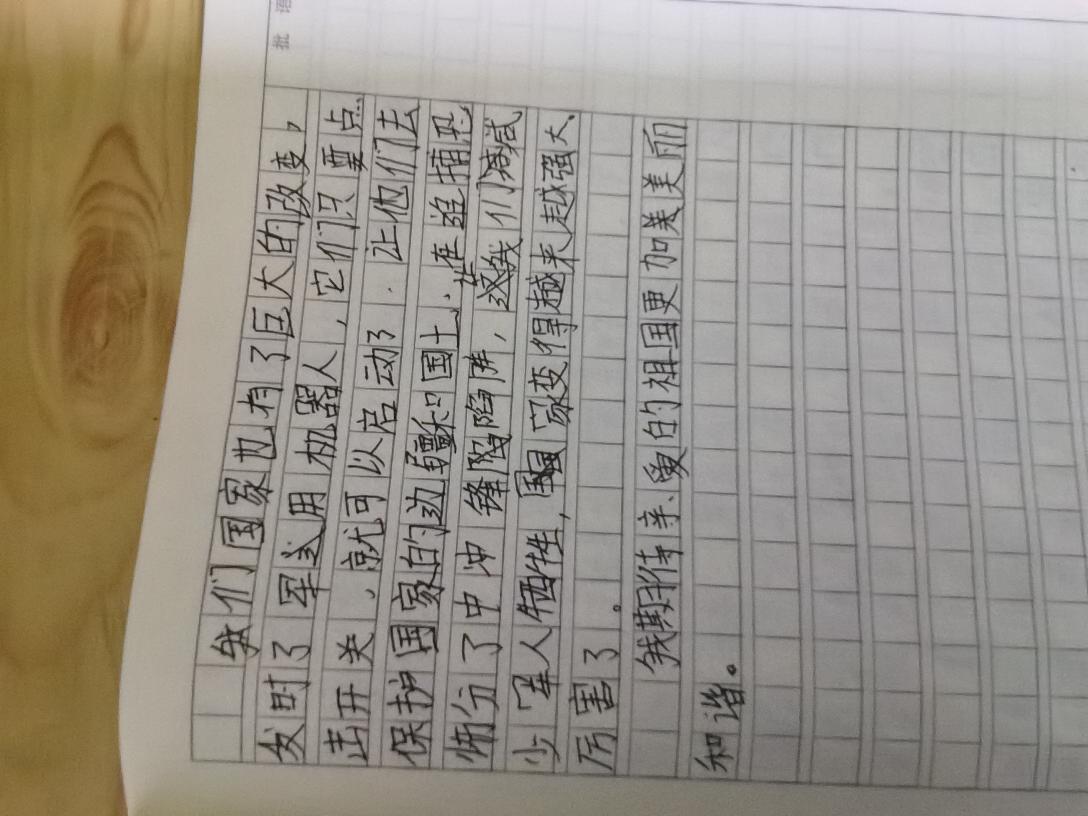 批语
我们国家也有了巨大的改变,
发明了军用机器人,它们只要点
击开关,就可以启动了.让他们去
保护国家的边疆和国土.在追捕恐
怖分了中冲锋陷阵,我们减
少军人牺牲,国家变得越来越强大、
厉害了。
我期待亲爱的祖国更加美丽
和谐。